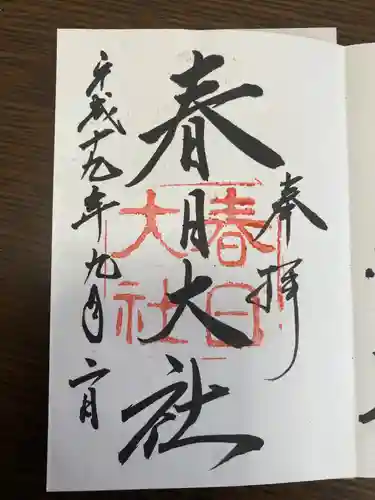 奉拝
春日大社
春日
大社
平成十九年九月二日